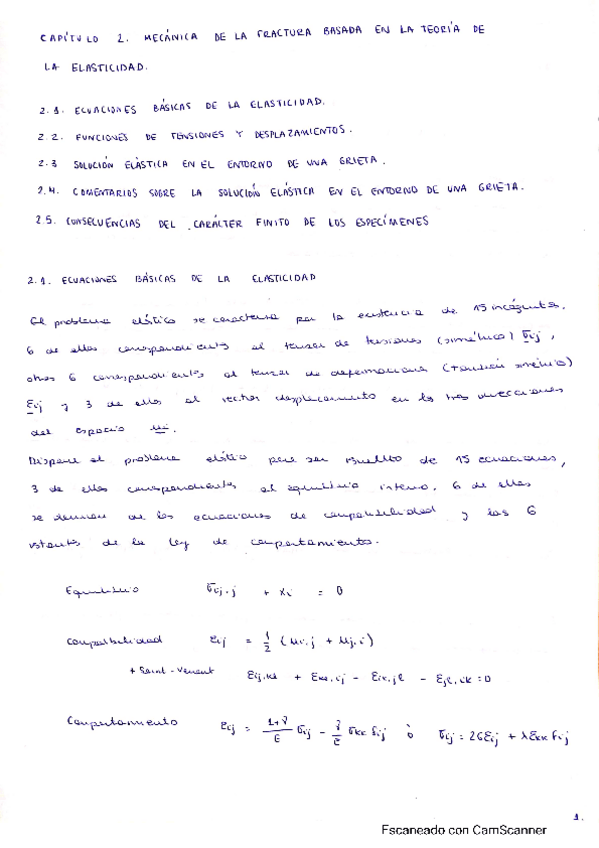 CAPÍTULO 2. MECÁNICA DE LA FRACTURA BASADA EN LA TEORÍA DE
LA ELASTICIDAD.
2.1. ECUACIONES BÁSICAS DE LA ELASTICIDAD.
2.2. FUNCIONES DE TENSIONES Y DESPLAZAMIENTOS.
2.3 SOLUCIÓN ELÁSTICA EN EL ENTORNO DE UNA GRIETA.
2.4. COMENTARIOS SOBRE LA SOLUCIÓN ELÁSTICA EN EL ENTORNO DE UNA GRIETA.
2.5. CONSECUENCIAS DEL CARÁCTER FINITO DE LOS ESPECÍMENES
2.1. ECUACIONES BÁSICAS DE LA ELASTICIDAD
El problema elástico se caracteriza por la existencia de 15 incógnitas.
6 de ellas correspondientes al tensor de tensiones (simétrico) σij,
otras 6 correspondientes al tensor de deformaciones (también simétrico)
εij y 3 de ellas al vector desplazamiento en las tres direcciones
del espacio ui.
Dispone el problema elástico para ser resuelto de 15 ecuaciones,
3 de ellas correspondientes al equilibrio interno, 6 de ellas
se derivan de las ecuaciones de compatibilidad y las 6
restantes de la ley de comportamiento.
Equilibrio σij,j + Xi = 0
Compatibilidad εij = 1/2 (ui,j + uj,i)
+ Saint-Venant εij,kl + εkl,ij - εik,jl - εjl,ik = 0
Comportamiento εij = (1+ν)/E σij - ν/E σkk δij ò σij = 2Gεij + λεkk δij
1.
Escaneado con CamScanner